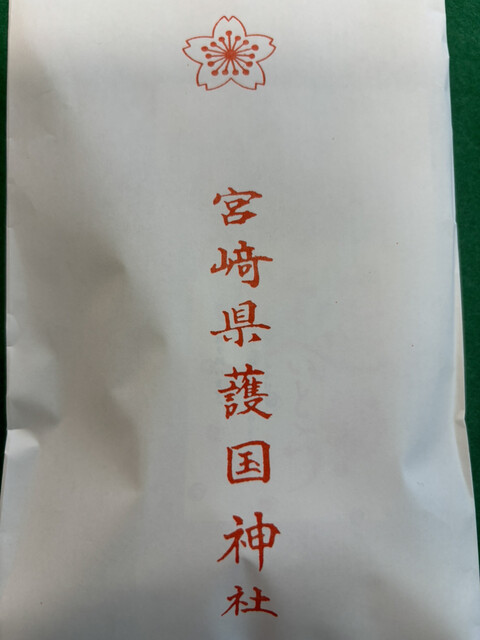 宮﨑県護国神社